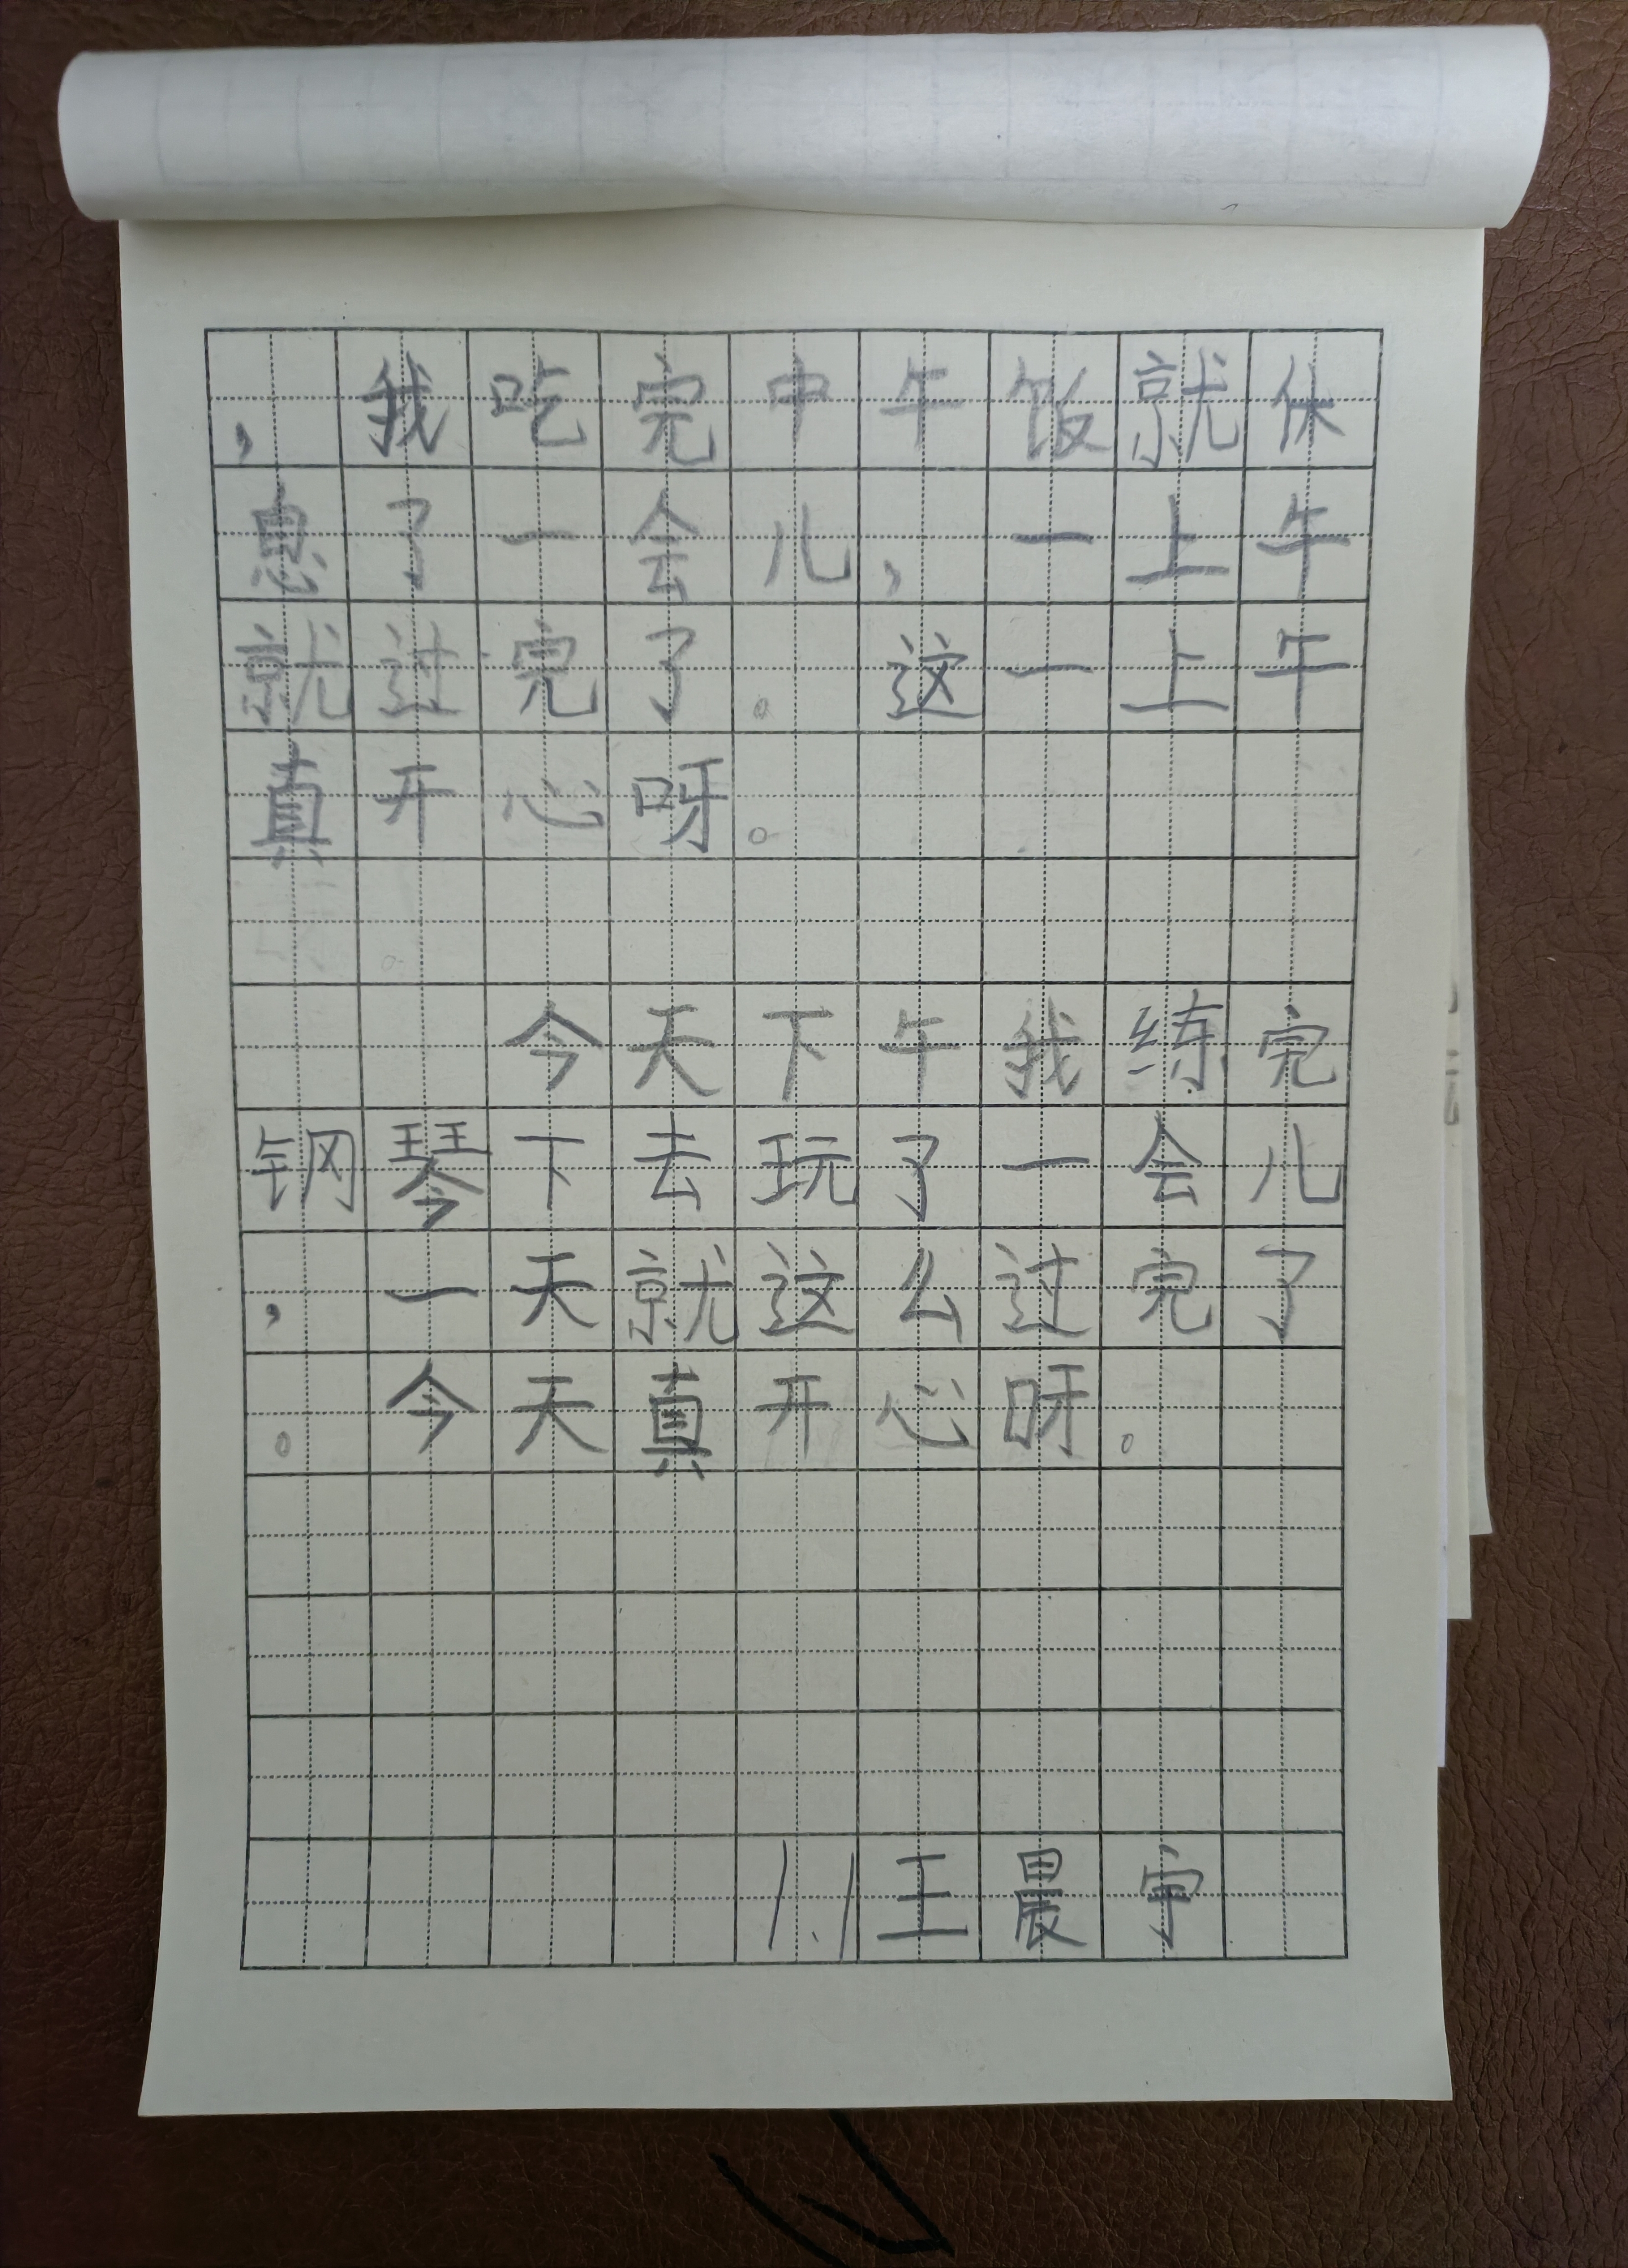 ，我吃完中午饭就休
息了一会儿，一上午
就过完了。这一上午
真开心呀。
今天下午我练完
钢琴下去玩了一会儿
，一天就这么过完了
。今天真开心呀。
1.1王晨宇